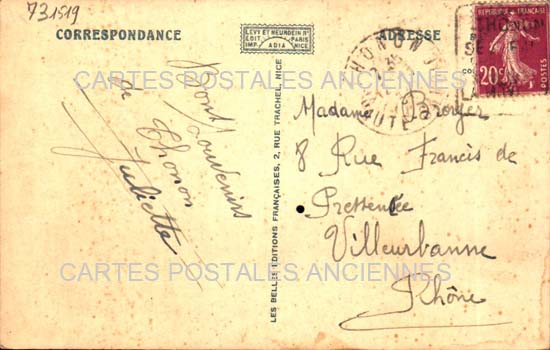 731519
CORRESPONDANCE
LEVY ET NEURDEIN Rs
EDIT. PARIS
IMP. ADIA NICE
ADRESSE
RÉPUBLIQUE FRANÇAISE
20c
POSTES
THONON
THONON
Bons
souvenirs
de Thonon
Juliette
LES BELLES ÉDITIONS FRANÇAISES, 2, RUE TRACHEL, NICE
Madame
8 Rue Francis de
Pressensée
Villeurbanne
Rhône
CARTES POSTALES ANCIENNES
CARTES POSTALES ANCIENNES